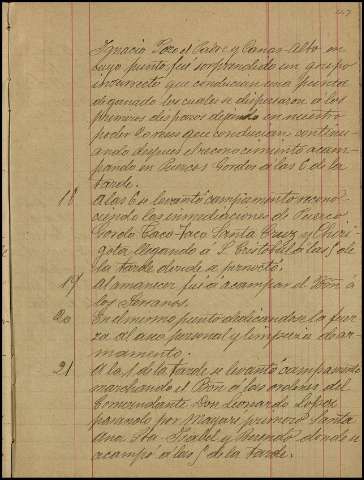 Ignacio Pozo el Padre y Canas-Alto en
cuyo punto fué sorprendido un grupo
insurrecto que conducian una punta
de ganado los cuales se dispersaron a los
primeros disparos dejando en nuestro
poder las reses que conducian continu-
ando despues el reconocimiento acam-
pando en Puercos Gordos a las 6 de la
tarde.
18 A las 6 se levantó campamento recono-
ciendo las inmediaciones de Puerco
Gordo Taco-Taco Santa Cruz y Chiri-
gota llegando á S. Cristobal a las 5 de
la tarde donde se pernoctó.
19 Al amanecer fué á acampar el Bon á
los Pinares.
20 En el mismo punto dedicandose la fuer-
za al aseo personal y limpieza de ar-
mamento.
21 A la 1 de la tarde se levantó campamento
marchando el Bon á las ordenes del
Comandante Don Leonardo Lopez
pasando por Mayari primero Santa
Ana Sta. Isabel y donde se
acampó a las 5 de la tarde.